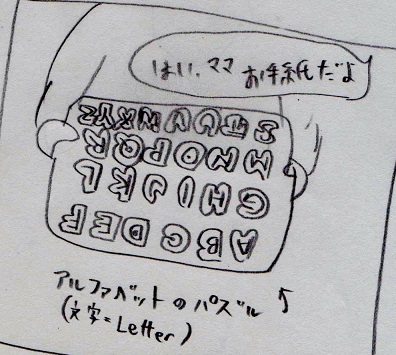 はい、ママ お手紙だよ
ABCDEF
GHIJKL
MNOPQR
STUVWXYZ
アルファベットのパズル
(文字=Letter)